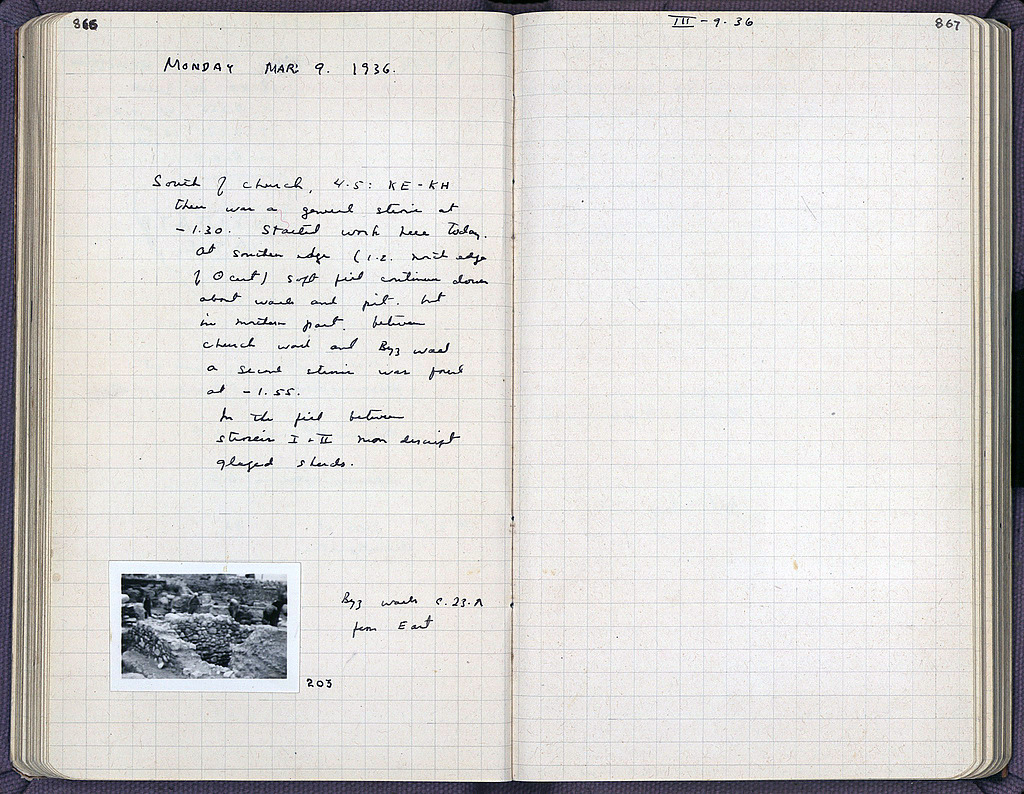 866
MONDAY MAR. 9. 1936.
South of church, 4.5: KE-KH
there was a general strosis at
-1.30. Started work here today.
At southern edge (1.2. north edge
of O cut) soft fill continues down
about walls and pit. but
in northern part, between
church wall and Byz wall
a second strosis was found
at -1.55.
In the fill between
stroseis I + II non descript
glazed sherds.
203
Byz walls
from East
III-9.36
867